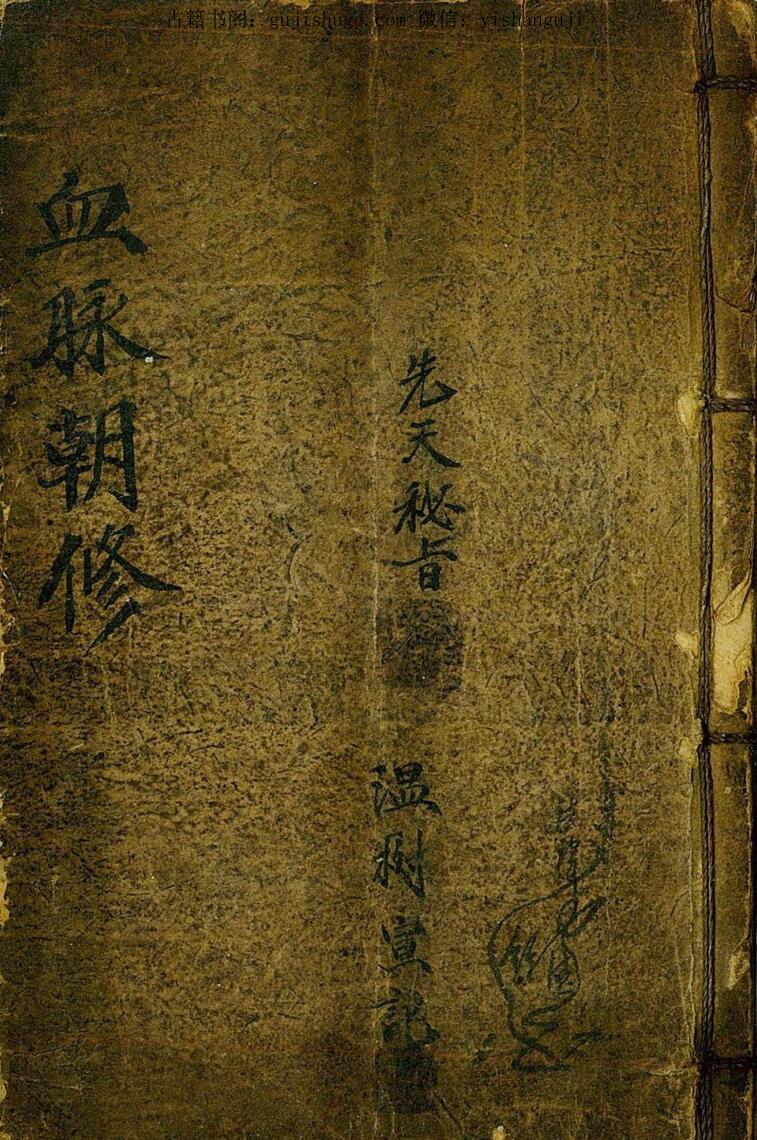 古籍书阁：gujishuge.com 微信：yishanguji
先天秘旨
温树宣記
血脉朝修